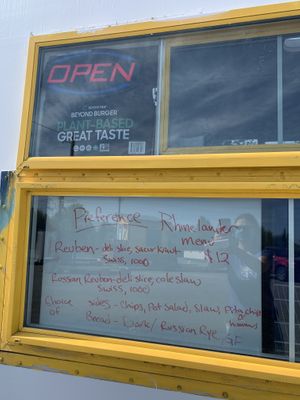 OPEN
BEYOND BURGER
PLANT-BASED
GREAT TASTE
Preference Rhinelander
menu
Reuben - deli slice, saur kraut
Swiss, 1000 $12
Russian Reuben - deli slice, coleslaw
Swiss, 1000
Choice of sides - Chips, Pot Salad, Slaw, Pita chips or hummus
Bread - Dark / Russian Rye, GF